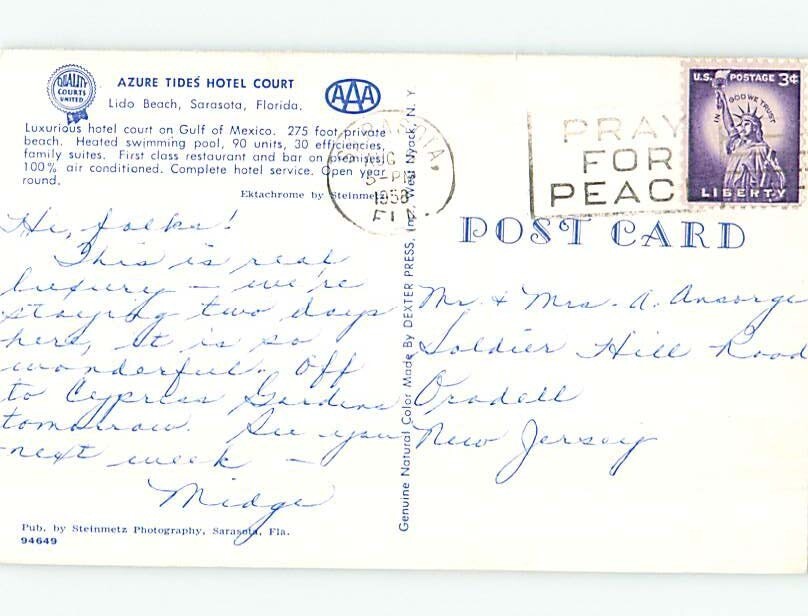 QUALITY
COURTS
UNITED
AZURE TIDES HOTEL COURT
Lido Beach, Sarasota, Florida.
AAA
Luxurious hotel court on Gulf of Mexico. 275 foot private
beach. Heated swimming pool, 90 units, 30 efficiencies,
family suites. First class restaurant and bar on premises.
100% air conditioned. Complete hotel service. Open year
round.
Ektachrome by Steinmetz
Hi, folks!
This is real
luxury – we're
staying two days
here, it is so
wonderful. Off
to Cypress Gardens
tomorrow. See you
next week –
Midge
Pub. by Steinmetz Photography, Sarasota, Fla.
94649
Genuine Natural Color Made By DEXTER PRESS, Inc. West Nyack, N. Y
SARASOTA,
5-PM
1958
FLA.
PRAY
FOR
PEAC
U.S. POSTAGE 3¢
IN GOD WE TRUST
LIBERTY
POST CARD
Mr. & Mrs. A. Ansorge
Soldier Hill Road
Oradell
New Jersey